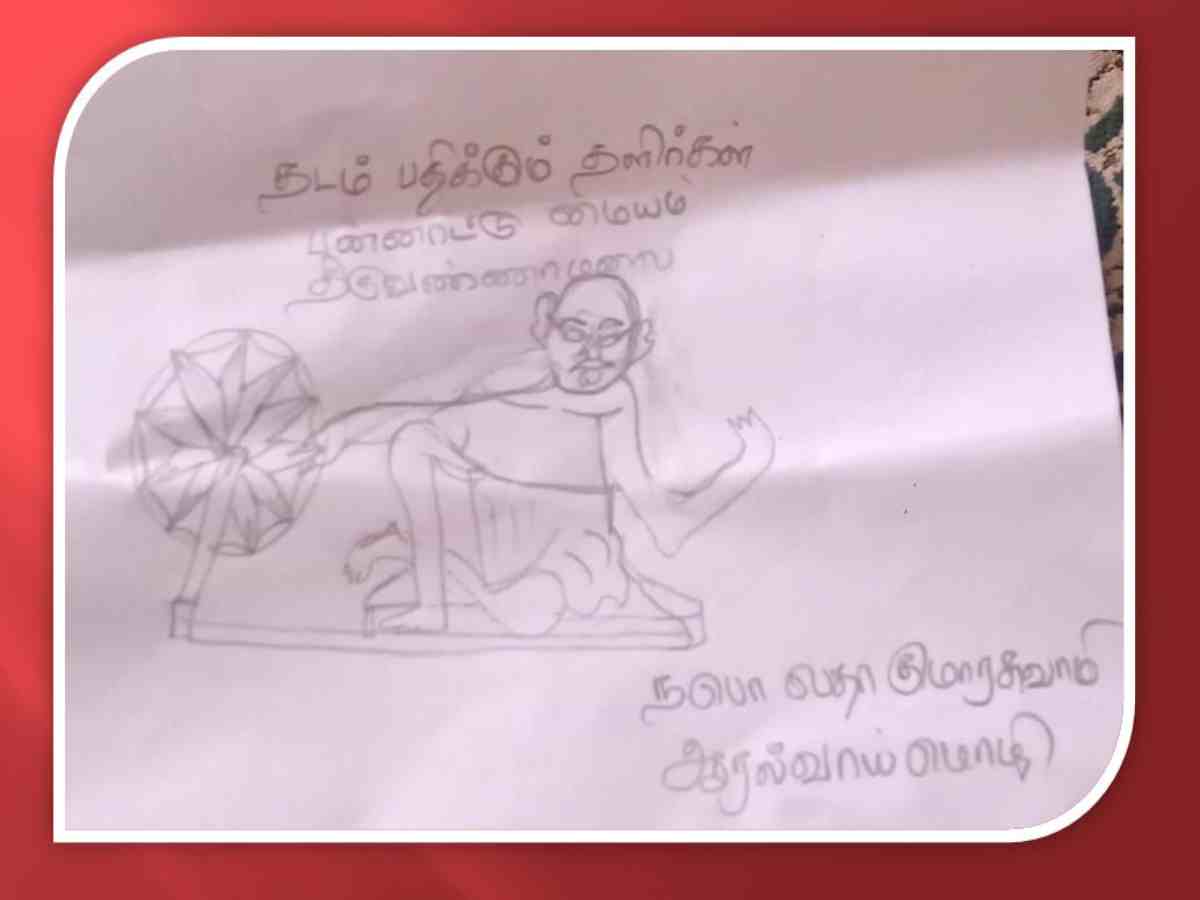 தடம் பதிக்கும் தளிர்கள்
பன்னாட்டு மையம்
திருவண்ணாமலை
நபொ லதா குமாரசுவாமி
ஆரல்வாய் மொழி